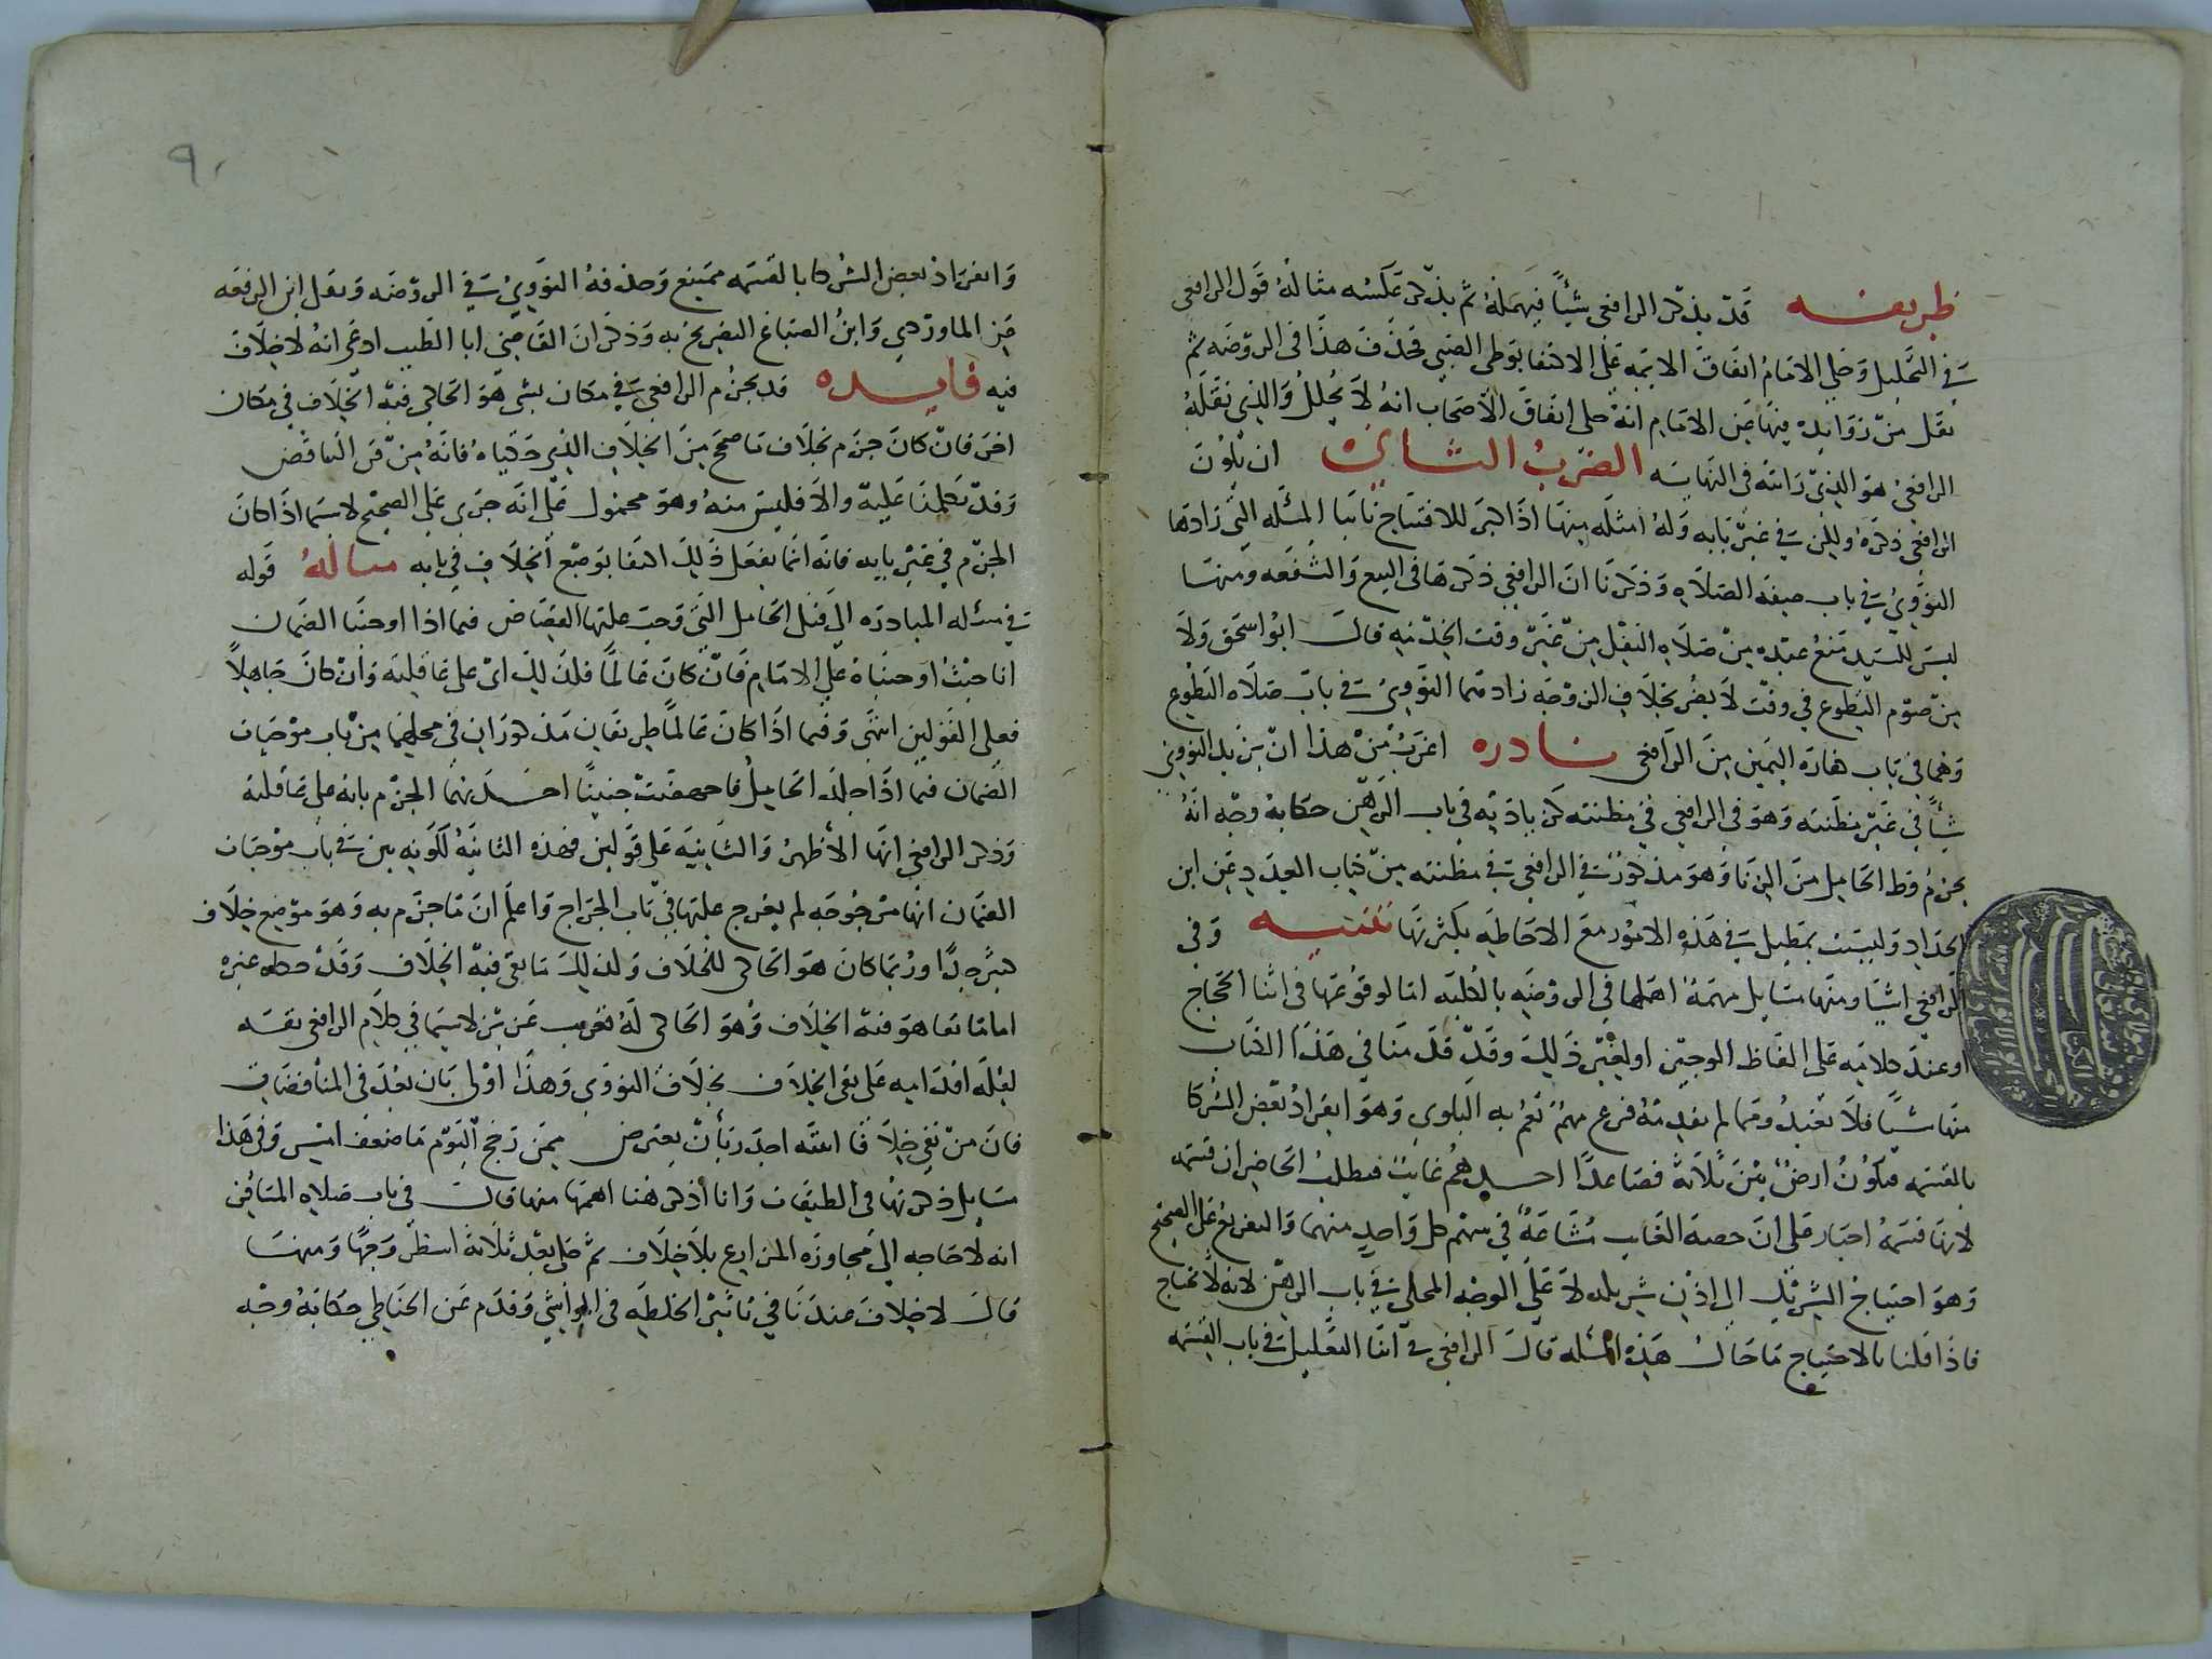 طريفه قد يذكر الرافعى شيئاً فيهمله ثم يذكر عكسه مثاله قول الرافعى
فى التحليل وحكى الامام اتفاق الايمه على الاكتفا بوطى الصبى فحذف هذا فى الروضه ثم
نقل من زوايده فيها عن الامام انه حكى اتفاق الاصحاب انه لا يحلل والذى نقله
الرافعى هو الذى رايته فى النهايه الضرب الثانى ان يكون
الرافعى ذكره ولكن فى غير بابه وله امثله منها اذا كبر للافتتاح نابيا المسئله التى زادها
النووى فى باب صفه الصلاه وذكرنا ان الرافعى ذكرها فى البيع والشفعه ومنها
ليس للسيد منع عبده من صلاه النفل من غير وقت الخدمه قال ابو اسحق ولا
من صوم التطوع فى وقت لا يضر بخلاف الزوجه زادهما النووى فى باب صلاه التطوع
وهما فى باب كفاره اليمين من الرافعى نادره اغرب من هذا ان يزيد النووى
شيأ فى غير مظنته وهو فى الرافعى فى مظنته كزيادته فى باب الرهن حكايه وجه انه
يحرم وط الحامل من الزنا وهو مذكور فى الرافعى فى مظنته من كتاب العدد عن ابن
الحداد وليست بمطيل فى هذه الامور مع الاحاطه بكثرتها تنبيه وفى
الرافعى اشيا ومنها مسايل مهمة اهملها فى الروضه بالكليه اما لوقوعها فى اثنا احتجاج
او عند كلامه على الفاظ الوجيز او لغير ذلك وقد قدمنا فى هذا الكتاب
منها شيئا فلا نعيد ومما لم نقدمه فرع مهم تعم به البلوى وهو انفراد بعض الشركا
بالقسمه فتكون ارض بين ثلاثة فصاعدا احدهم غايب فيطلب الحاضران قسمه
لانها قسمه اجبار على ان حصه الغايب مشاعة فى سهم كل واحد منهما والتفريع على الصحيح
وهو احتياج الشريك الى اذن شريكه لا على الوجه المحكى فى باب الرهن لانه لا يحتاج
فاذا قلنا بالاحتياج فما حال هذه المسئله قال الرافعى فى اثنا التعليل فى باب القسمه
٩٠
وانفراد بعض الشركا بالقسمه ممتنع وحذفه النووى فى الروضه ونقل ابن الرفعه
عن الماوردى وابن الصباغ التصريح به وذكر ان القاضى ابا الطيب ادعى انه لا خلاف
فيه فايده قد يجزم الرافعى فى مكان بشى هو الحاكى فيه الخلاف فى مكان
اخر فان كان جزم بخلاف ما صحح من الخلاف الذى حكياه فانه من فن التناقض
وقد تكلمنا عليه والا فليس منه وهو محمول على انه جرى على الصحيح لاسيما اذا كان
الجزم فى غير بابه فانه انما يفعل ذلك اكتفا بوضع الخلاف فى بابه مساله قوله
فى مسئله المبادره الى قتل الحامل التى وجب عليها القصاص فيما اذا اوجبنا الضمان
انا حيث اوجبناه على الامام فان كان عالما فكذلك اى على عاقلته وان كان جاهلاً
فعلى القولين انتهى وفيما اذا كان عالما طريقان مذكوران فى محلهما من باب موجبات
الضمان فيما اذا جلد الحامل فاجهضت جنينا احدهما الجزم بانه على عاقلته
وذكر الرافعى انها الاظهر والثانيه على قولين فهذه الثانيه لكونه بين فى باب موجبات
الضمان انها مرجوحه لم يعرج عليها فى باب الجراح واعلم ان ما جزم به وهو موضع خلاف
كثير جدا وربما كان هو الحاكى للخلاف وكذلك ما نفى فيه الخلاف وقد حكاه غيره
اما ما نفاه هو فيه الخلاف وهو الحاكى له فغريب عزيز لاسيما فى كلام الرافعى نفسه
لقله اقدامه على نفى الخلاف بخلاف النووى وهذا اولى بان يعد فى المناقضات
فان من نفى خلافا اثبته اجدر بأن يعترض ممن رجح اليوم ما ضعف امس وفى هذا
مسايل ذكرتها فى الطبقات وانا اذكر هنا اهمها منها قال فى باب صلاه المسافر
انه لا حاجه الى مجاوزه المزارع بلا خلاف ثم حكى بعد ثلاثة اسطر وجها ومنها
قال لا خلاف عندنا فى تاثير الخلطه فى المواشى وقدم عن الحناطى حكايه وجه